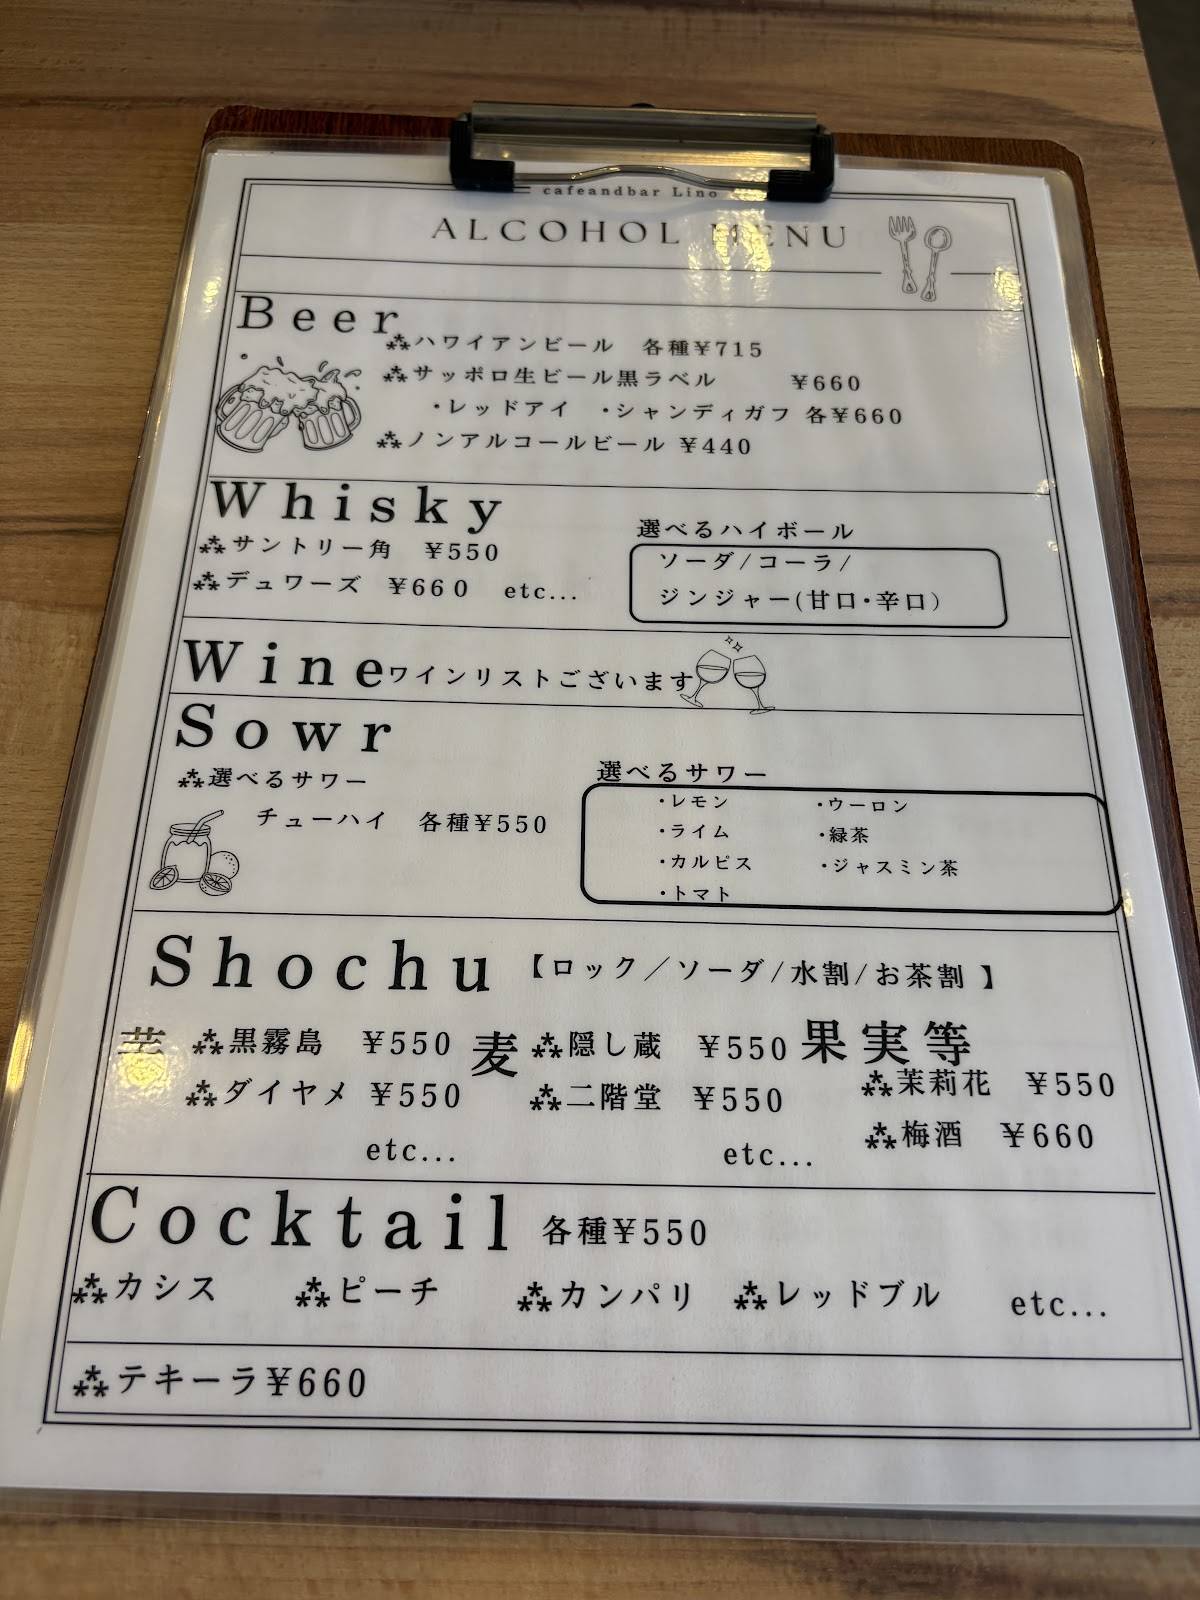 cafeandbar Lino
ALCOHOL MENU
Beer
⁂ハワイアンビール 各種¥715
⁂サッポロ生ビール黒ラベル ¥660
・レッドアイ ・シャンディガフ 各¥660
⁂ノンアルコールビール ¥440
Whisky
⁂サントリー角 ¥550
⁂デュワーズ ¥660 etc...
選べるハイボール
ソーダ/コーラ/
ジンジャー(甘口・辛口)
Wine ワインリストございます
Sowr
⁂選べるサワー
チューハイ 各種¥550
選べるサワー
・レモン ・ウーロン
・ライム ・緑茶
・カルピス ・ジャスミン茶
・トマト
Shochu 【ロック／ソーダ/水割/お茶割 】
芋 ⁂黒霧島 ¥550
⁂ダイヤメ ¥550
etc...
麦 ⁂隠し蔵 ¥550
⁂二階堂 ¥550
etc...
果実等
⁂茉莉花 ¥550
⁂梅酒 ¥660
Cocktail 各種¥550
⁂カシス ⁂ピーチ ⁂カンパリ ⁂レッドブル etc...
⁂テキーラ¥660